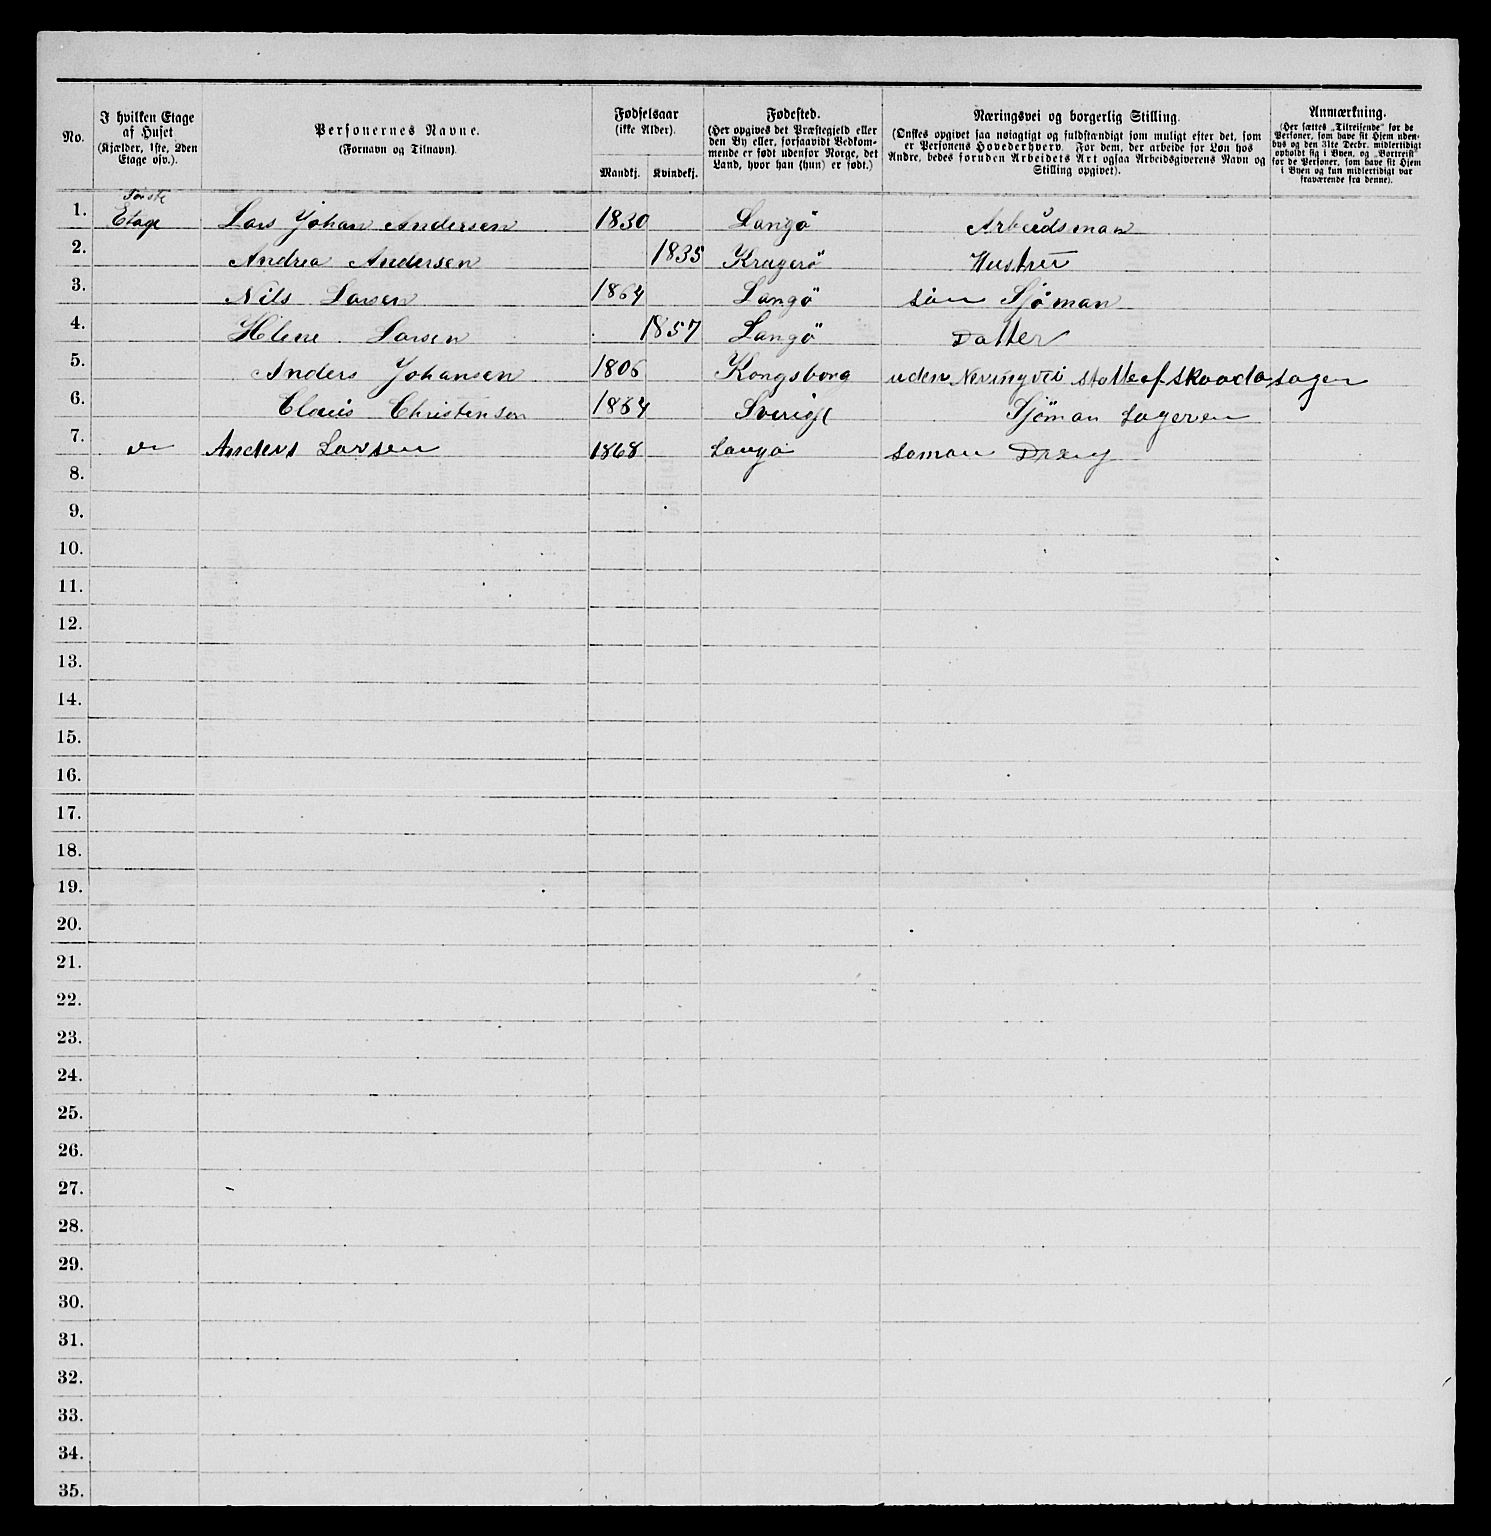 No.
I hvilken Etage
af Huset
(Kjælder, 1ste, 2den
Etage osv.).
Personernes Navne.
(Fornavn og Tilnavn).
Fødselsaar
(ikke Alder).
Mandkj. Kvindekj.
Fødested.
(Her opgives det Præstegjeld eller
den By eller, forsaavidt Vedkom-
mende er født udenfor Norge, det
Land, hvor han (hun) er født.)
Næringsvei og borgerlig Stilling.
(Ønskes opgivet saa nøiagtigt og fuldstændigt som muligt efter det, som
er Personens Hovederhverv. For dem, der arbeide for Løn hos
Andre, bedes foruden Arbeidets Art ogsaa Arbeidsgiverens Navn og
Stilling opgivet).
Anmærkning.
(Her sættes „Tilreisende" for de
Personer, som have sit Hjem uden-
bys og den 31te Decbr. midlertidigt
opholdt sig i Byen, og „Bortreist"
for de Personer, som have sit Hjem
i Byen og kun midlertidigt var
fraværende fra denne).
1. Første Etage Lars Johan Andersen 1830 Langö Arbeidsman
2. Andrea Andersen 1835 Kragerö Hustru
3. Nils Larsen 1864 Langö sön Sjöman
4. Helene Larsen 1857 Langö Datter
5. Anders Johansen 1806 Kongsborg uden Neringvei
6. Claus Christenson 1864 Sverige Sjöman
7. Anders Larsen 1868 Langö
8.
9.
10.
11.
12.
13.
14.
15.
16.
17.
18.
19.
20.
21.
22.
23.
24.
25.
26.
27.
28.
29.
30.
31.
32.
33.
34.
35.